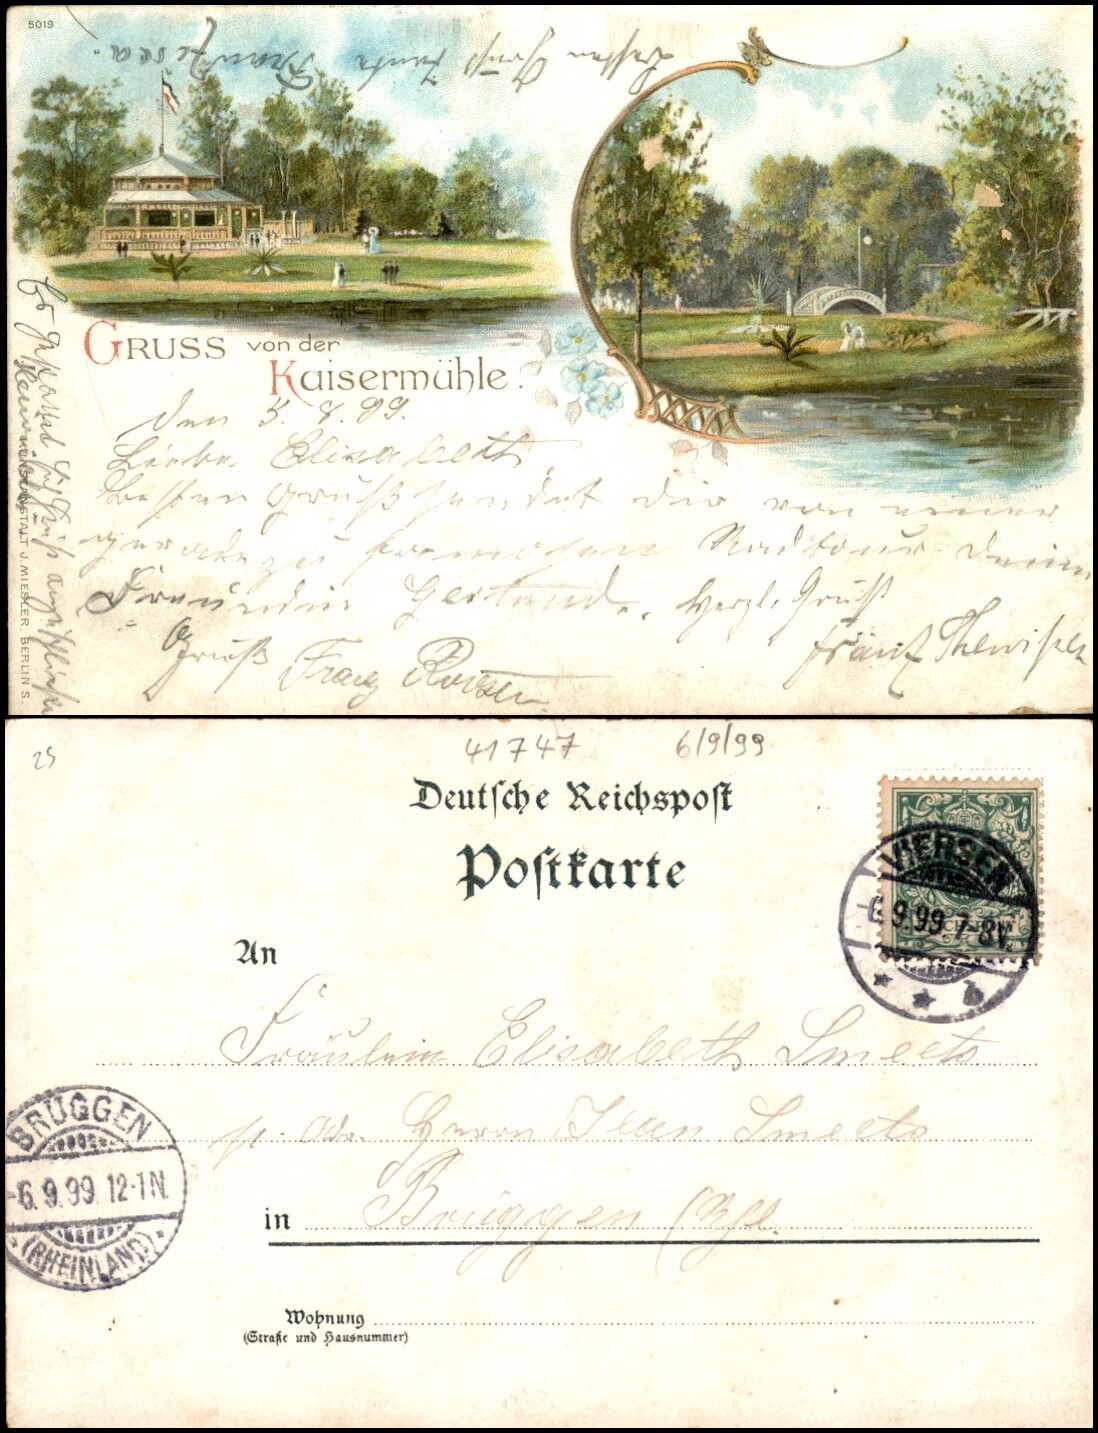 5019
Besten Gruß
GRUSS von der
Kaisermühle.
Den 5. 8. 99.
Liebe Elisabeth
Besten Gruß sendet dir von einer
geradezu famosen Radtour deine
Freundin Gertrud. Herzl. Gruß
Gruß Franz
KUNSTANSTALT J. MIESLER, BERLIN S.
25
41747 6/9/99
Deutsche Reichspost
Postkarte
VIERSEN
6.9.99.7-8V.
* * b
An
Fräulein Elisabeth Smeets
p. adr. Herrn Jean Smeets
in Brüggen
BRÜGGEN
-6.9.99.12-1N.
(RHEINLAND)
Wohnung
(Straße und Hausnummer)